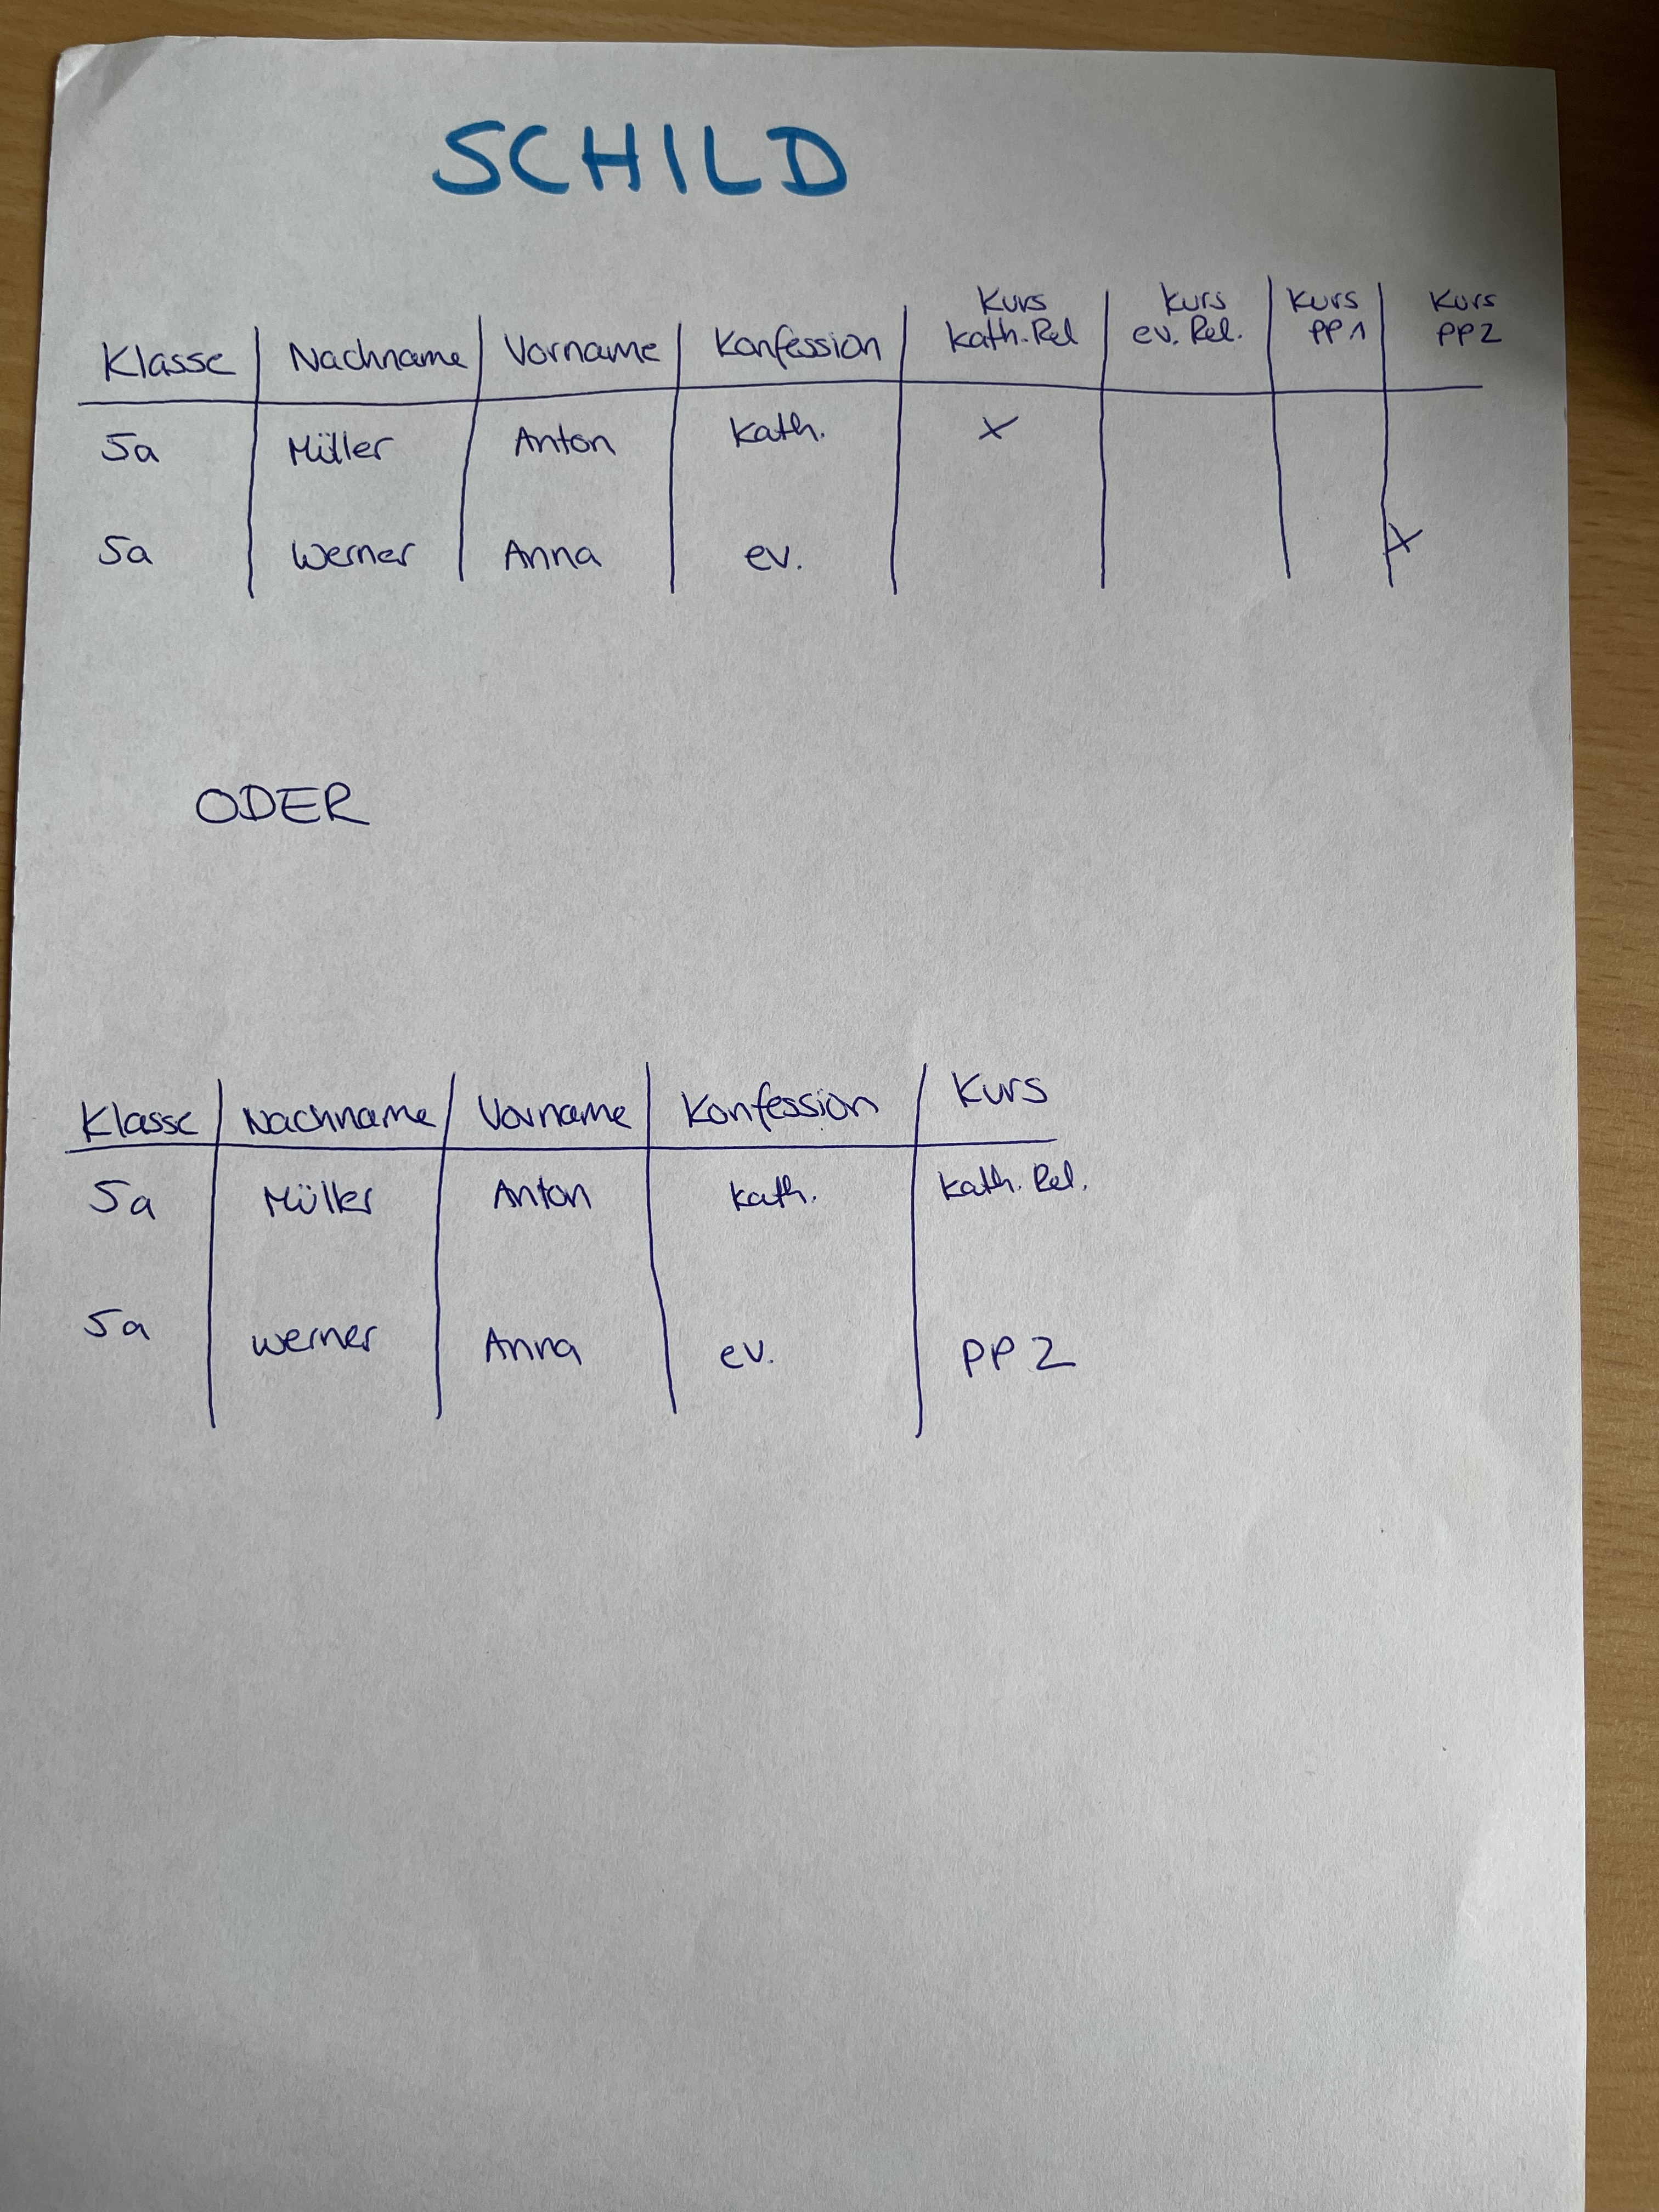 SCHILD
Klasse Nachname Vorname Konfession Kurs kath. Rel Kurs ev. Rel. Kurs PP1 Kurs PP2
5a Müller Anton kath. x
5a Werner Anna ev. x
ODER
Klasse Nachname Vorname Konfession Kurs
5a Müller Anton kath. kath. Rel.
5a Werner Anna ev. PP 2